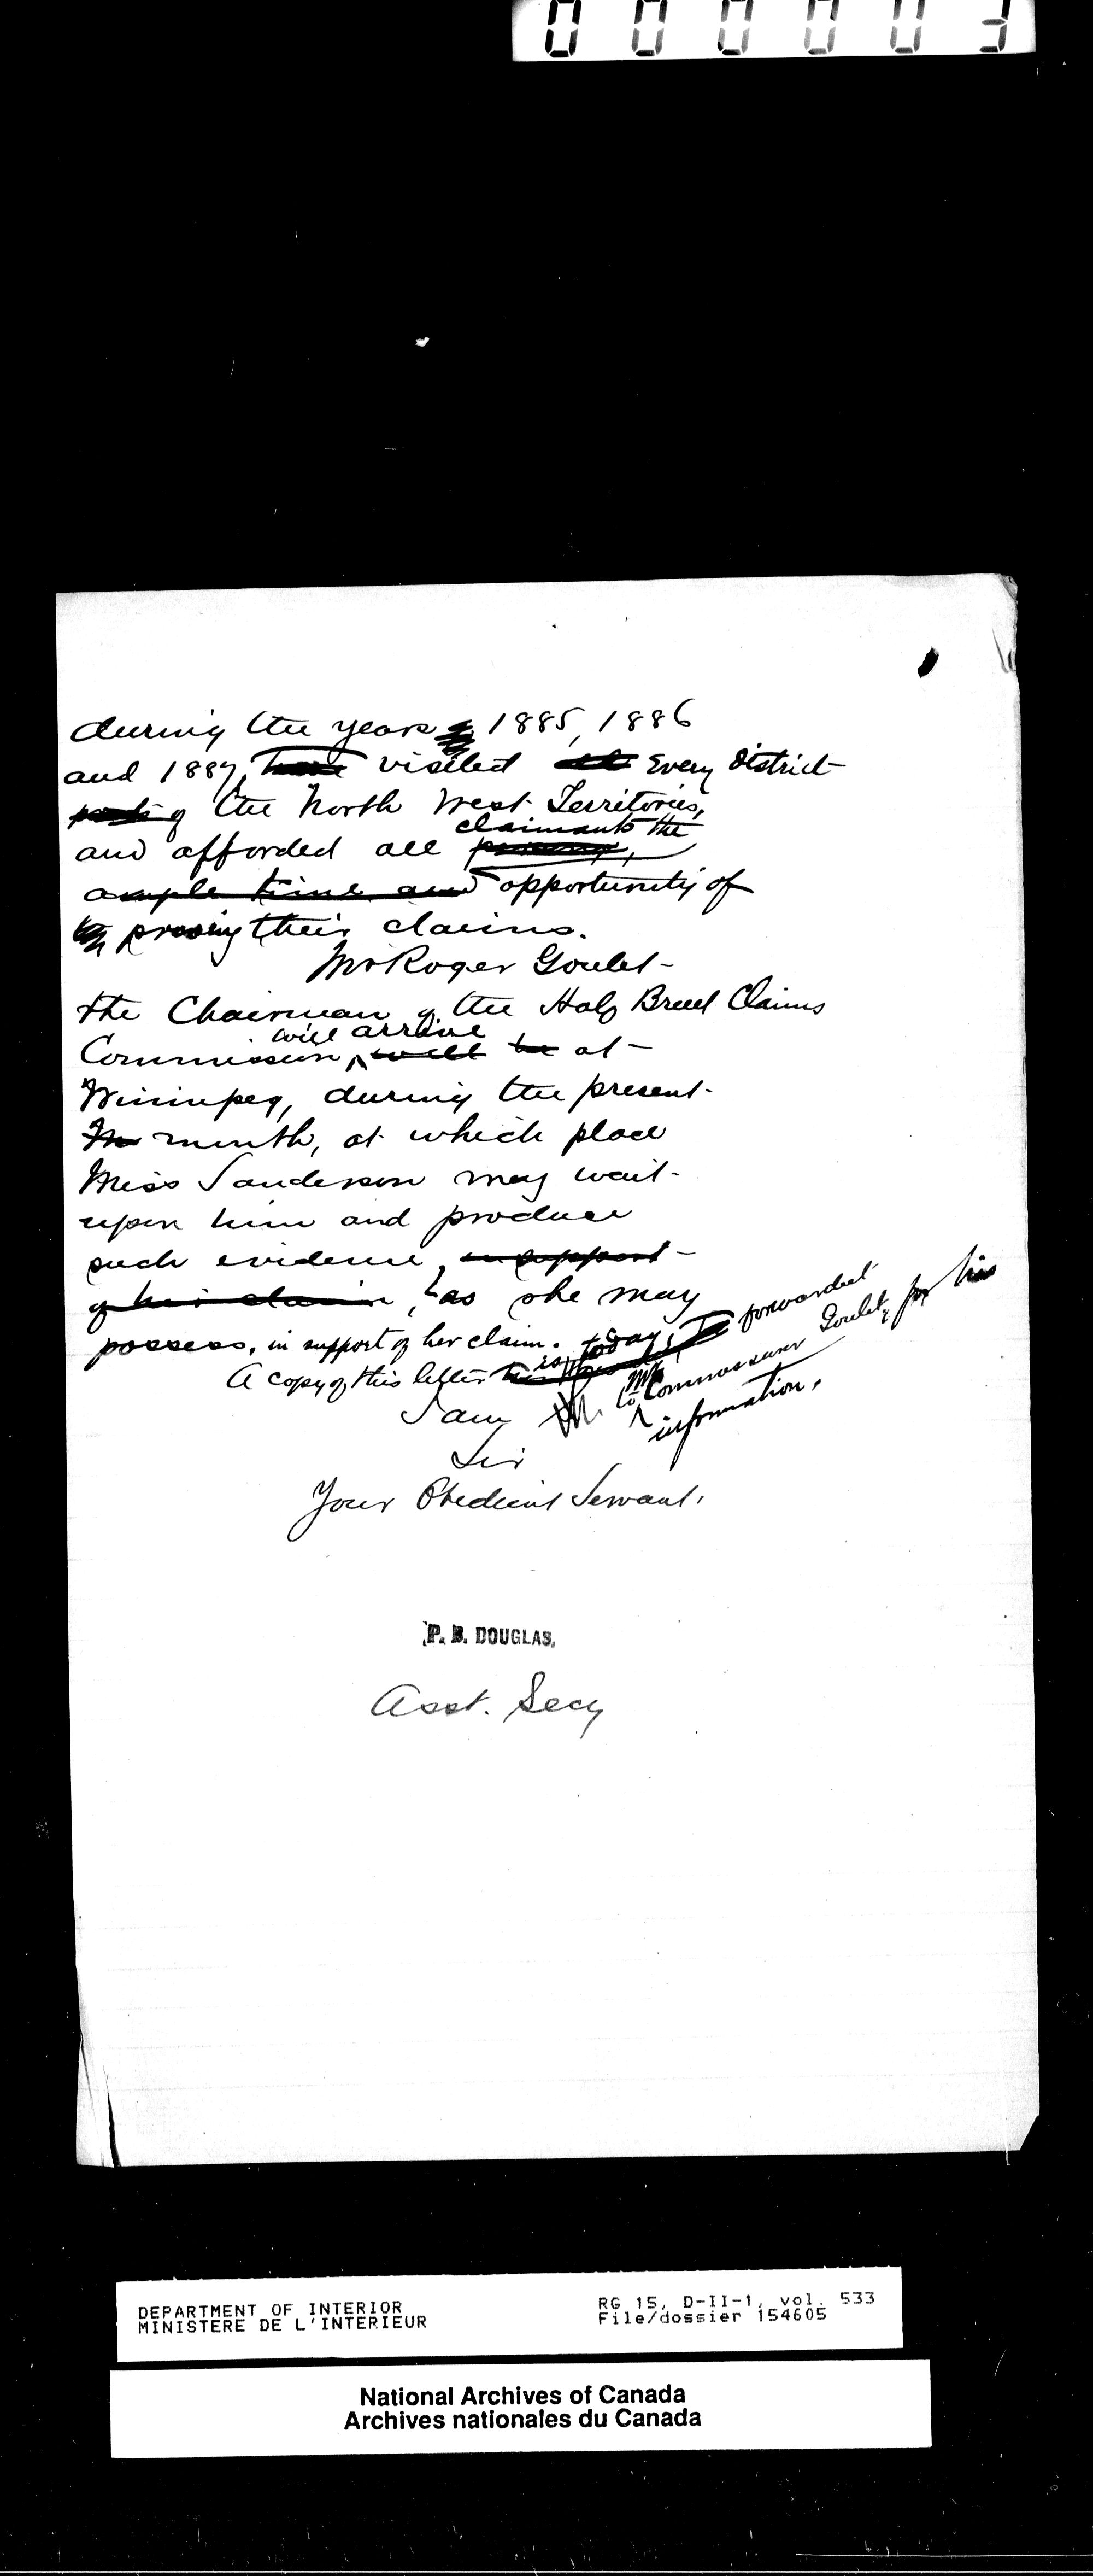 000003
during the years 1885, 1886
and 1887, have visited all Every District
parts of the North West Territories,
claimants the
and afforded all persons,
ample time and opportunity of
proving their claims.
Mr Roger Goulet
the Chairman of the Half Breed Claims
will arrive
Commission, will be at
Winnipeg, during the present
month, at which place
Miss Sanderson may wait
upon him and produce
such evidence, in support
of her claim, as she may
possess, in support of her claim.
A copy of this letter is today forwarded
to Mr Commissioner Goulet, for his
information.
I am
Sir
Your Obedient Servant,
P. B. DOUGLAS,
Asst. Secy
DEPARTMENT OF INTERIOR
MINISTERE DE L'INTERIEUR
RG 15, D-II-1, vol. 533
File/dossier 154605
National Archives of Canada
Archives nationales du Canada